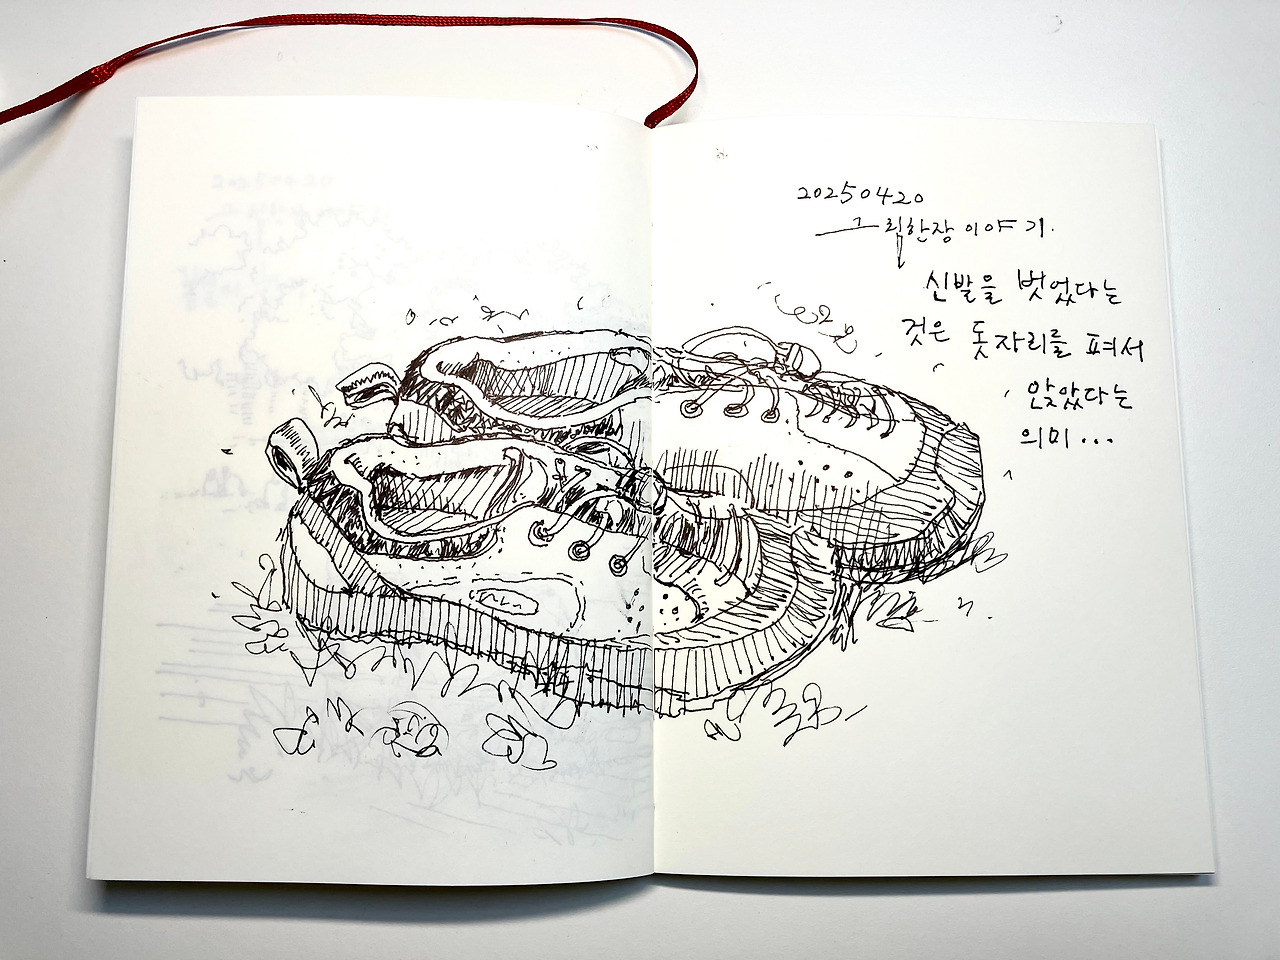 20250420
그림한장 이야기.
신발을 벗었다는
것은 돗자리를 펴서
앉았다는
의미...